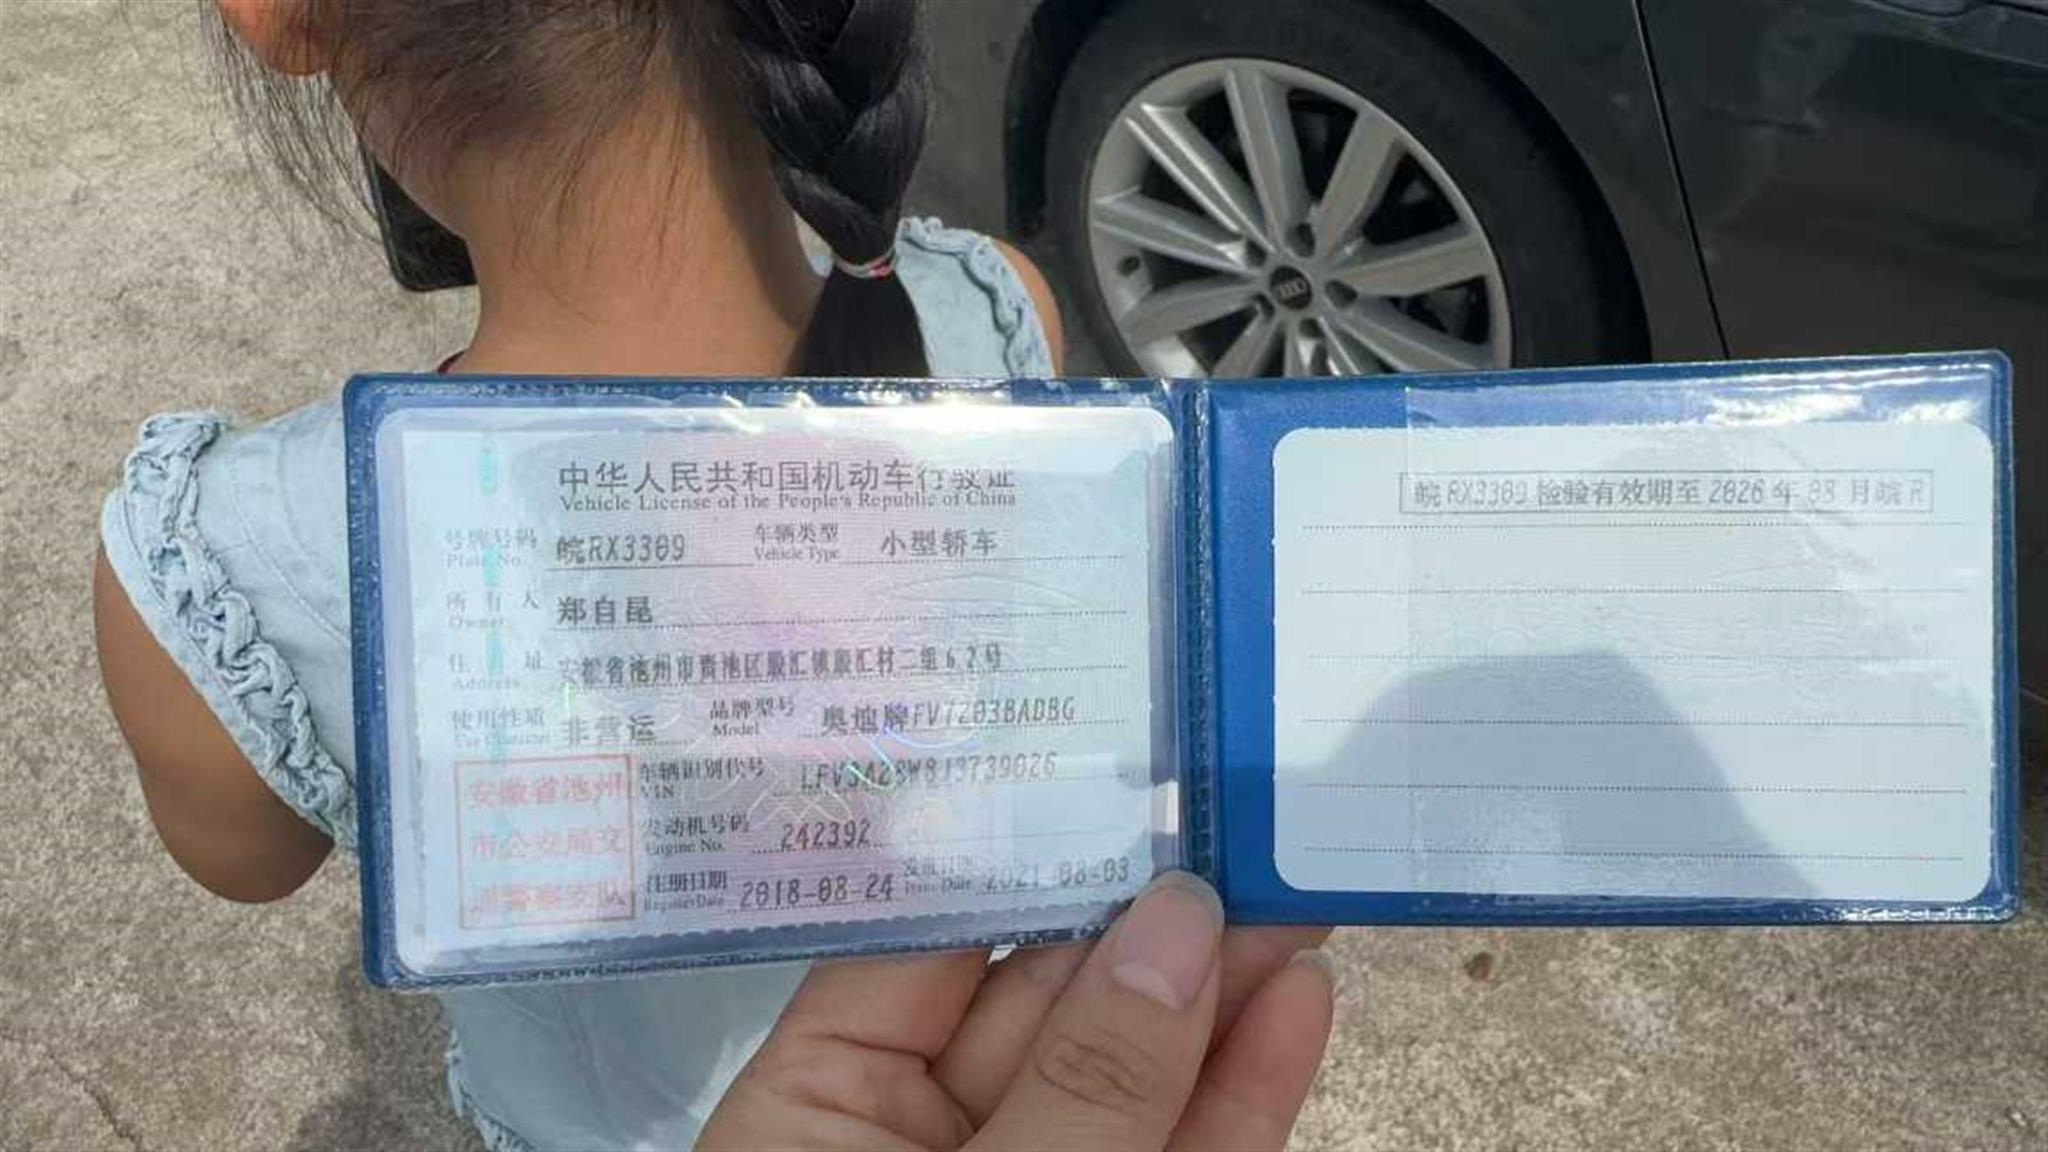 中华人民共和国机动车行驶证
Vehicle License of the People's Republic of China
号牌号码 皖RX3309 车辆类型 小型轿车
Plate No. Vehicle Type
所有人 郑自昆
Owner
住址 安徽省池州市贵池区殷汇镇殷汇村二组62号
Address
使用性质 非营运 品牌型号 奥迪牌FV7203BADBG
Use Character Model
车辆识别代号 LFV3A28W8J3739026
VIN
安徽省池州
市公安局交
通警察支队
发动机号码 242392
Engine No.
注册日期 2018-08-24 发证日期 2021-08-03
Register Date Issue Date
皖RX3309 检验有效期至 2026 年 08 月皖 R